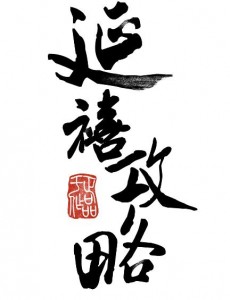 延禧攻略